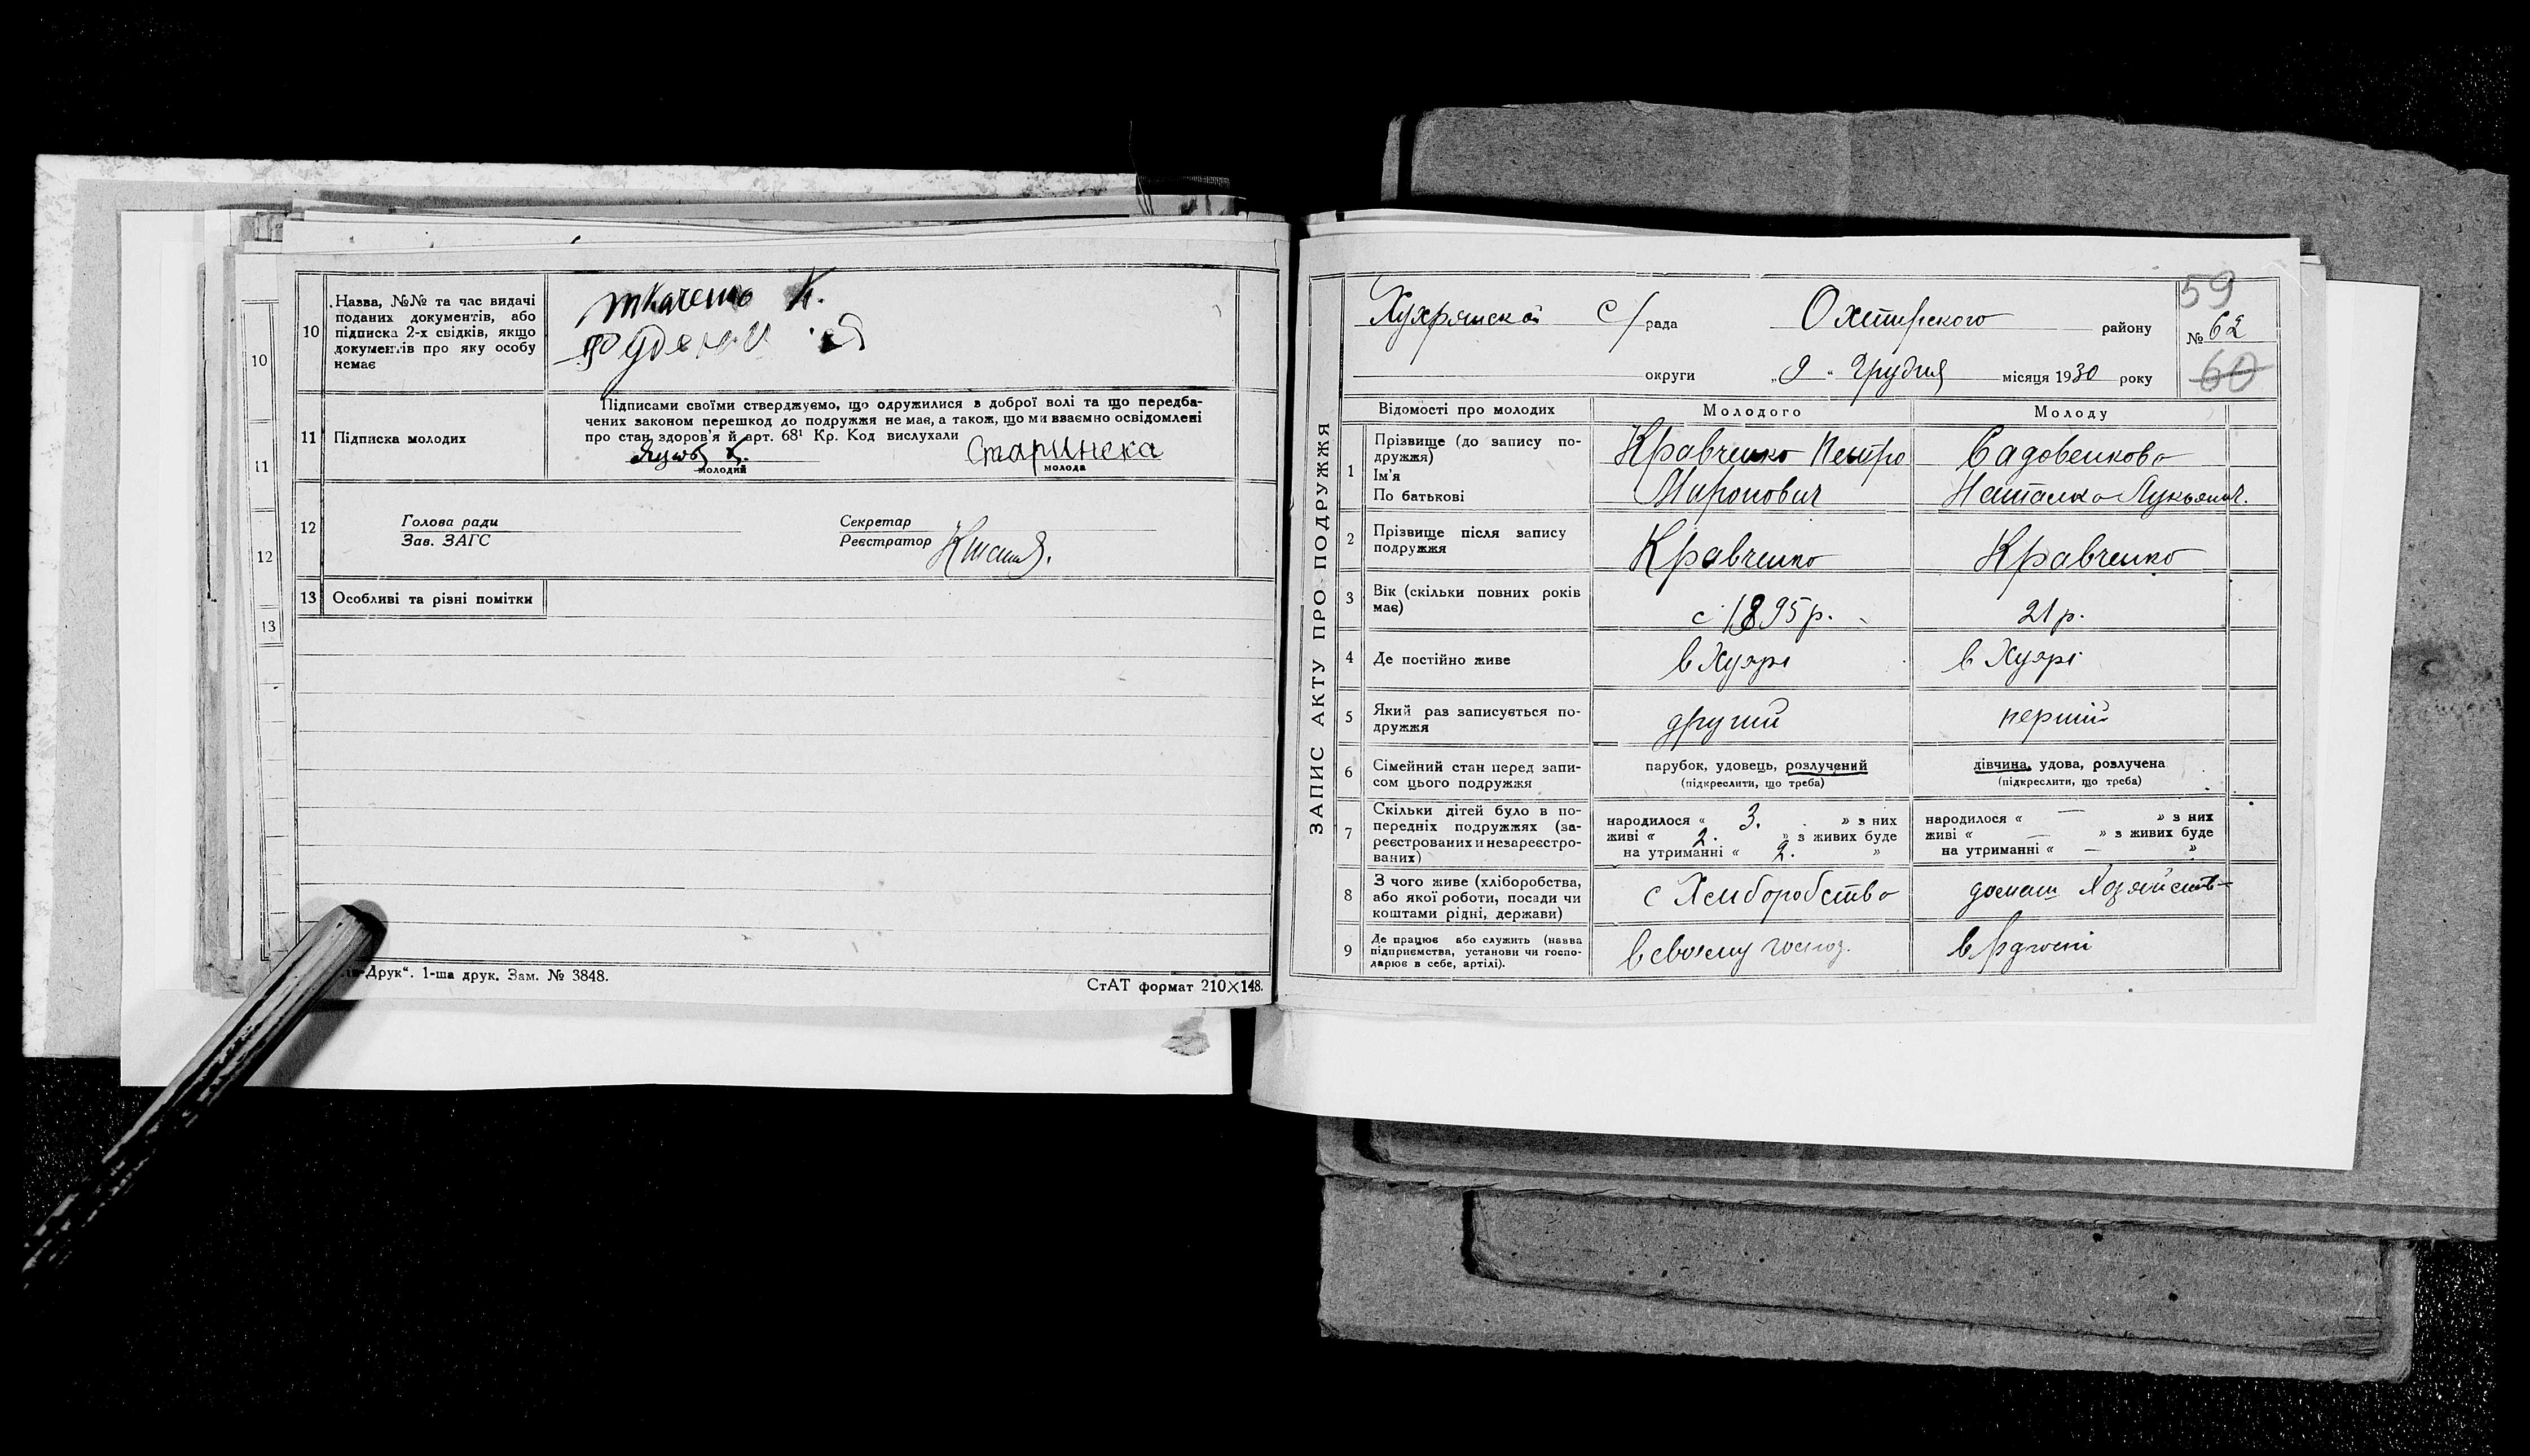 10
11
12
13
10
Назва, №№ та час видачі
поданих документів, або
підписка 2-х свідків, якщо
документів про яку особу
немає
ткаченко К.
11
Підписка молодих
Підписами своїми стверджуємо, що одружилися з доброї волі та що передба-
чених законом перешкод до подружжя не має, а також, що ми взаємно освідомлені
про стан здоров'я й арт. 68¹ Кр. Код вислухали
Старинска
молодий
молода
12
Голова ради
Зав. ЗАГС
Секретар
Реєстратор
13
Особливі та різні помітки
Друк“. 1-ша друк. Зам. № 3848.
СтАТ формат 210×148.
ЗАПИС АКТУ ПРО ПОДРУЖЖЯ
59
Хухрянска с/рада Охтирского району
№ 62
округи „9“ Грудня місяця 1930 року
60
Відомості про молодих Молодого Молоду
1
Прізвище (до запису по-
дружжя)
Ім'я
По батькові
Кравченко Петро
Миронович
Садовенкова
Наталка Лукьянів.
2
Прізвище після запису
подружжя
Кравченко
Кравченко
3
Вік (скільки повних років
має)
с 1895р.
21 р.
4
Де постійно живе
в Хухрі
в Хухрі
5
Який раз записується по-
дружжя
другий
перший
6
Сімейний стан перед запи-
сом цього подружжя
парубок, удовець, розлучений
(підкреслити, що треба)
дівчина, удова, розлучена
(підкреслити, що треба)
7
Скільки дітей було в по-
передніх подружжях (за-
реєстрованих и незареєстро-
ваних)
народилося « 3. » з них
живі « 2. » з живих буде
на утриманні « 2. »
народилося « — » з них
живі « — » з живих буде
на утриманні « — »
8
З чого живе (хліборобства,
або якої роботи, посади чи
коштами рідні, держави)
с Хлиборобство
домаш Хозяйств
9
Де працює або служить (назва
підприємства, установи чи госпо-
дарює в себе, артілі).
в своєму господ.
в